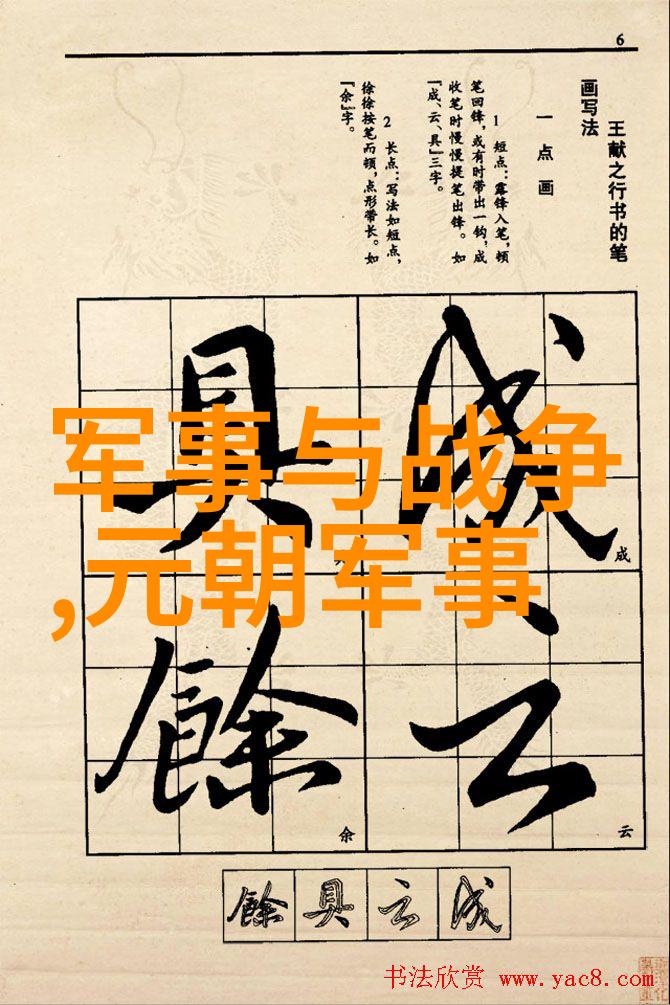 6
王献之行书的笔
画写法
一 点 画
1 短点：露锋入笔，顿
笔回锋，或有时带出一钩，成
收笔时慢慢提笔出锋。如
“成、云、具”三字。
2 长点：写法如短点，
徐徐按笔而顿，点形带长。如
“余”字。
成
具
成
云
餘
云
余
军事与战争
,元朝军事
餘 具 云 成
书法欣赏 www.yac8.com